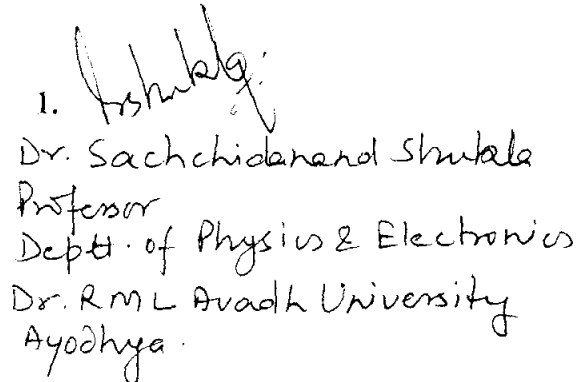 1.
Dr. Sachchidanand Shukla
Professor
Deptt. of Physics & Electronics
Dr. RML Avadh University
Ayodhya.